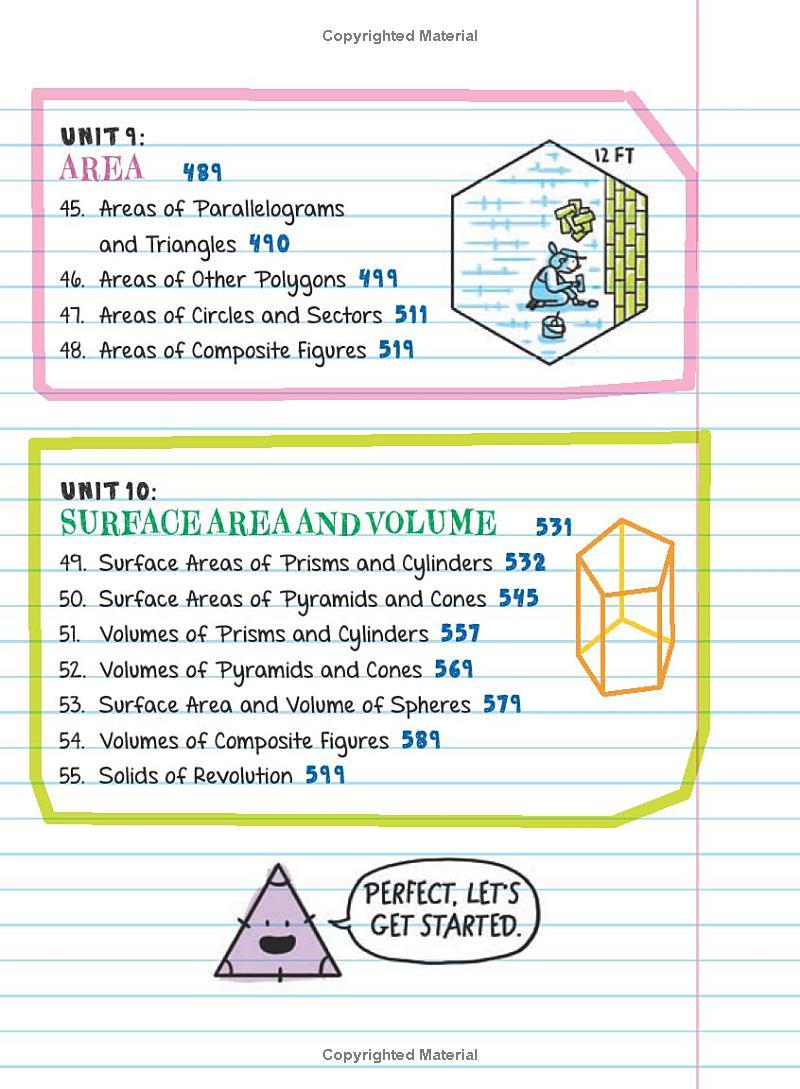 Copyrighted Material
UNIT 9:
AREA 489
12 FT
45. Areas of Parallelograms
and Triangles 490
46. Areas of Other Polygons 499
47. Areas of Circles and Sectors 511
48. Areas of Composite Figures 519
UNIT 10:
SURFACE AREA AND VOLUME 531
49. Surface Areas of Prisms and Cylinders 532
50. Surface Areas of Pyramids and Cones 545
51. Volumes of Prisms and Cylinders 557
52. Volumes of Pyramids and Cones 569
53. Surface Area and Volume of Spheres 579
54. Volumes of Composite Figures 589
55. Solids of Revolution 599
PERFECT, LET'S
GET STARTED.
Copyrighted Material